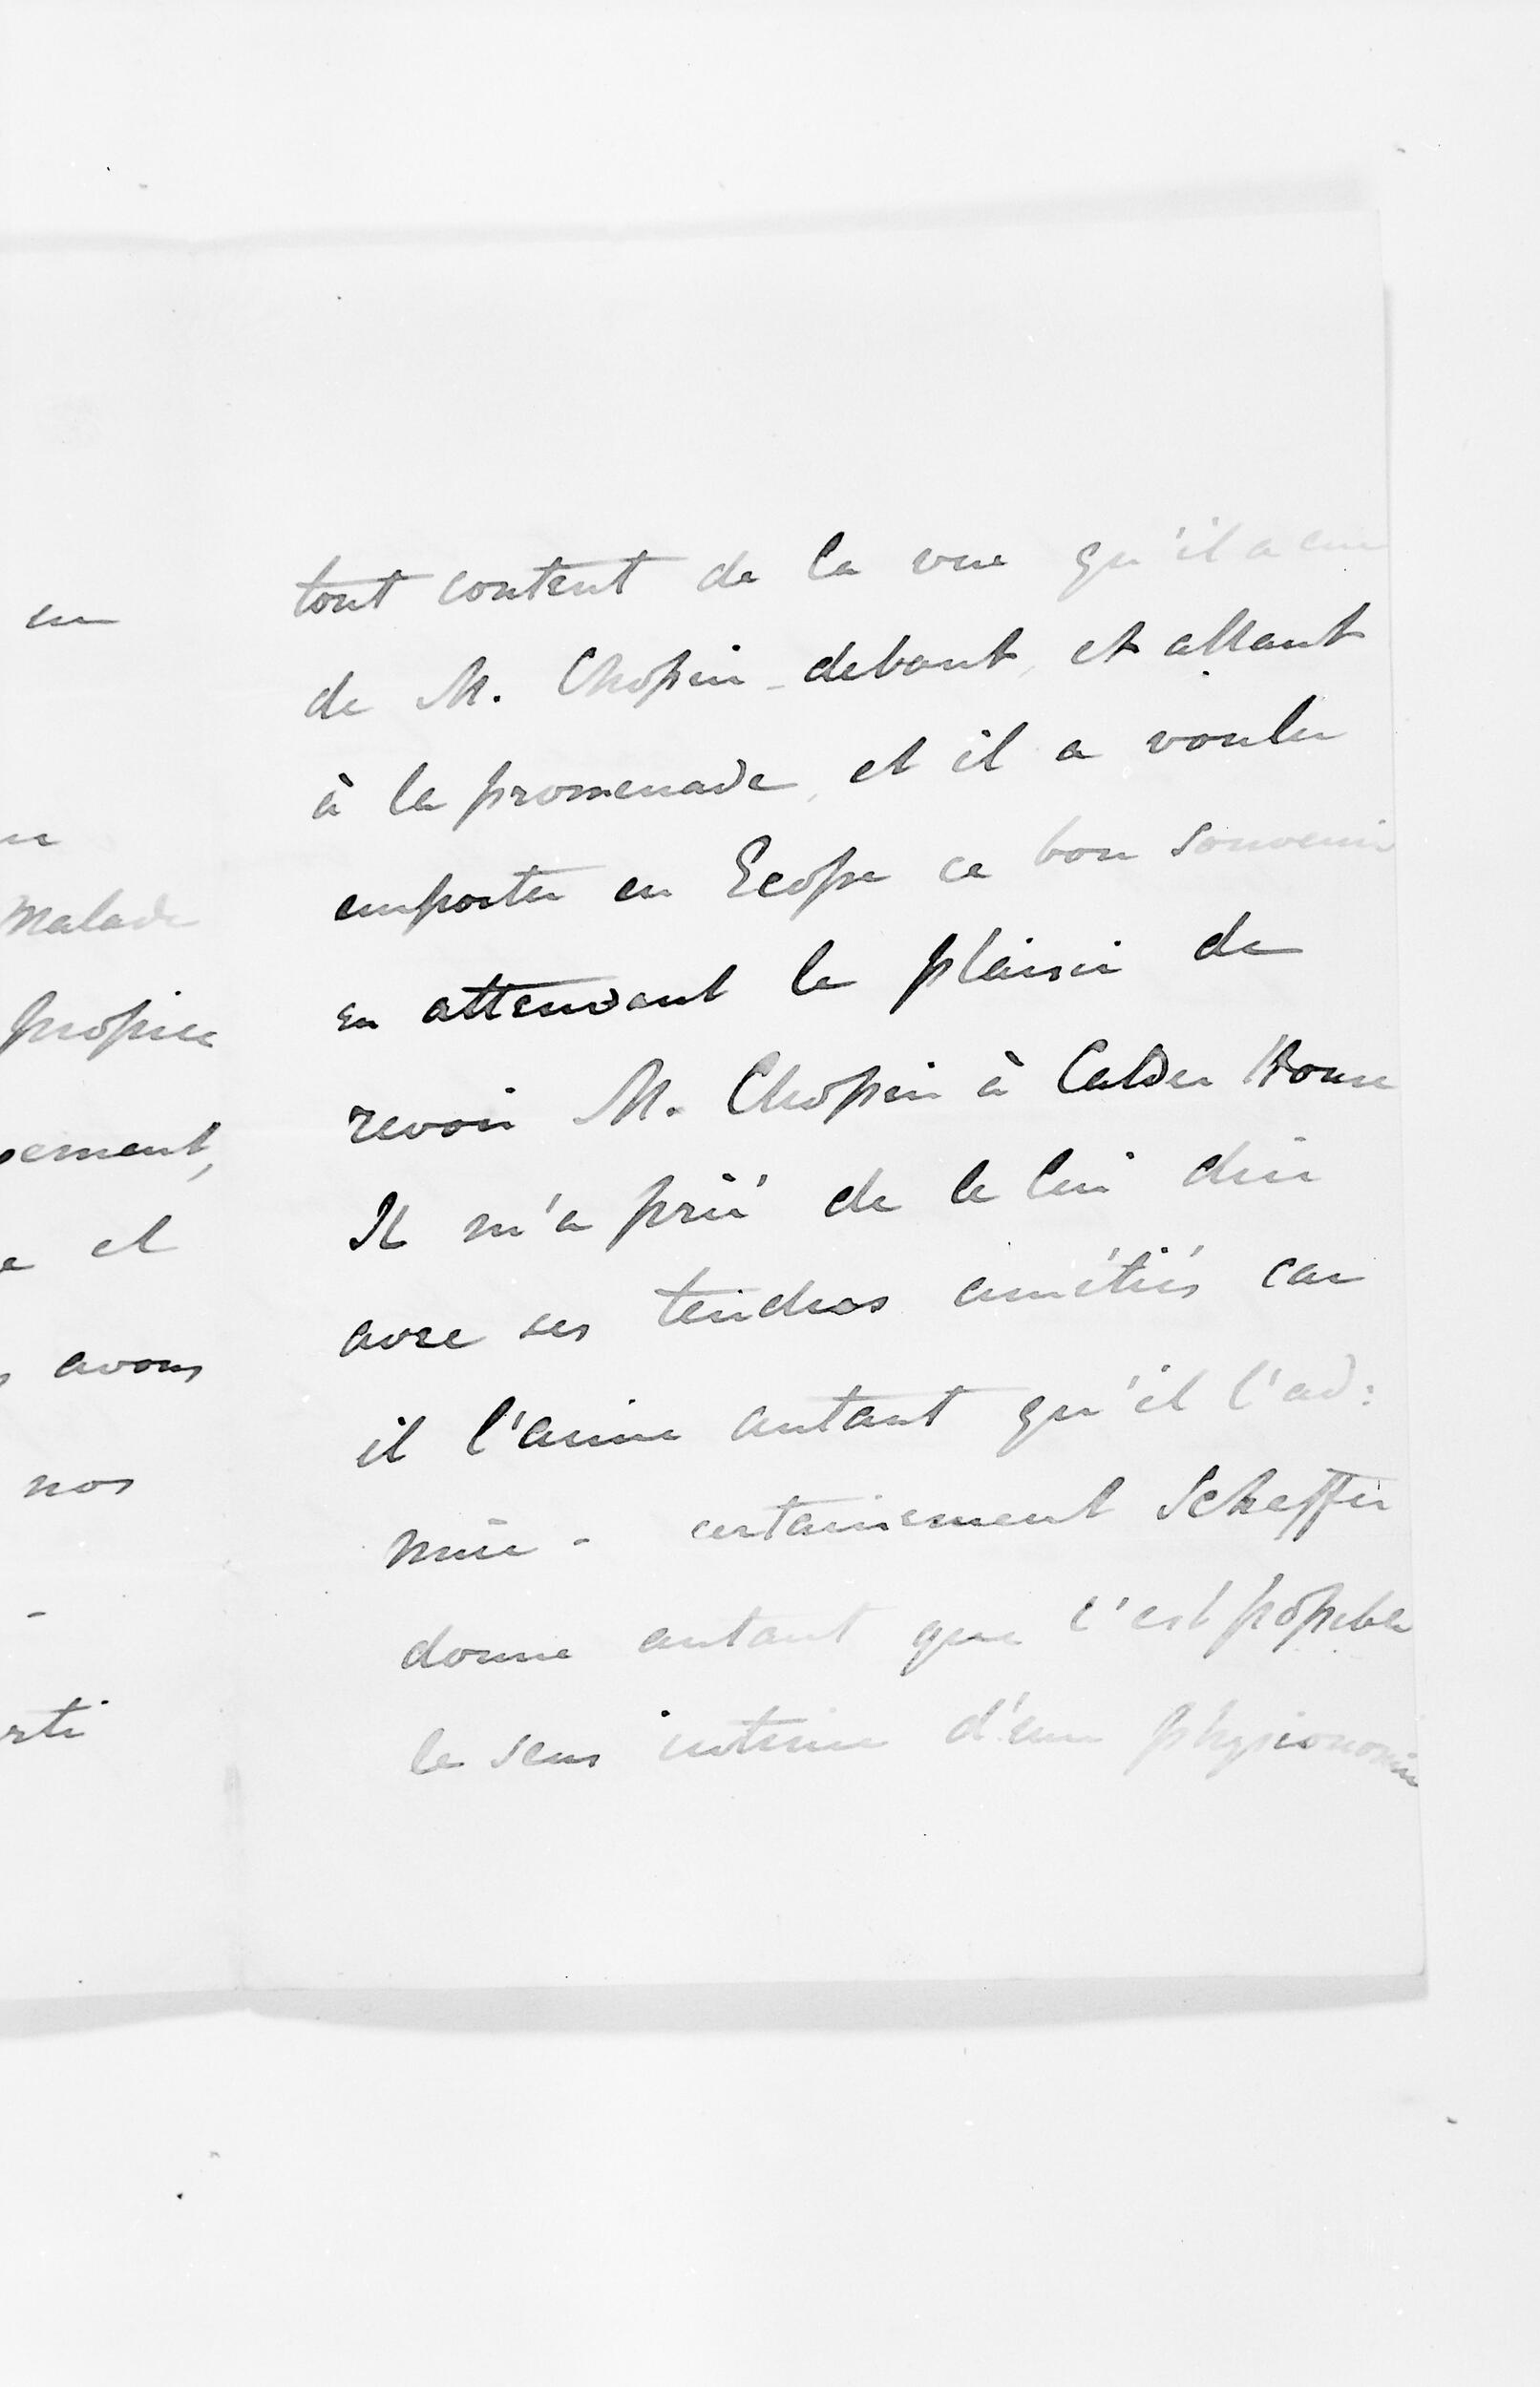 en
malade
propice
sement,
et
avons
nos
-
rti
tout content de la vue qu'il a eue
de M. Chopin - debout, et allant
à la promenade, et il a voulu
emporter en Ecosse ce bon souvenir
en attendant le plaisir de
revoir M. Chopin à Calder House
Il m'a prié de le lui dire
avec ses tendres amitiés car
il l'aime autant qu'il l'ad:
mire - certainement Scheffer
donne autant que c'est possible
le sens intime d'une physionomie